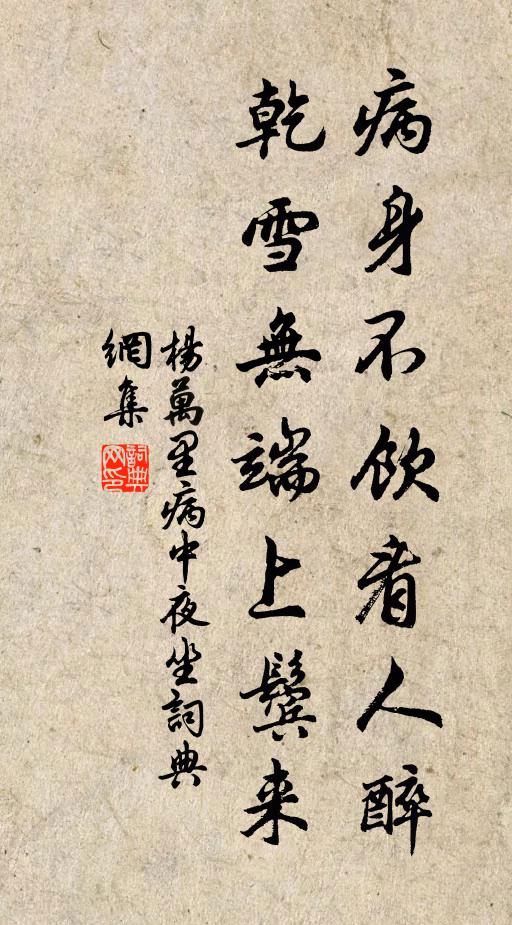 病身不飲看人醉
乾雪無端上鬓来
楊萬里病中夜坐詞典
網集
詞典
网印